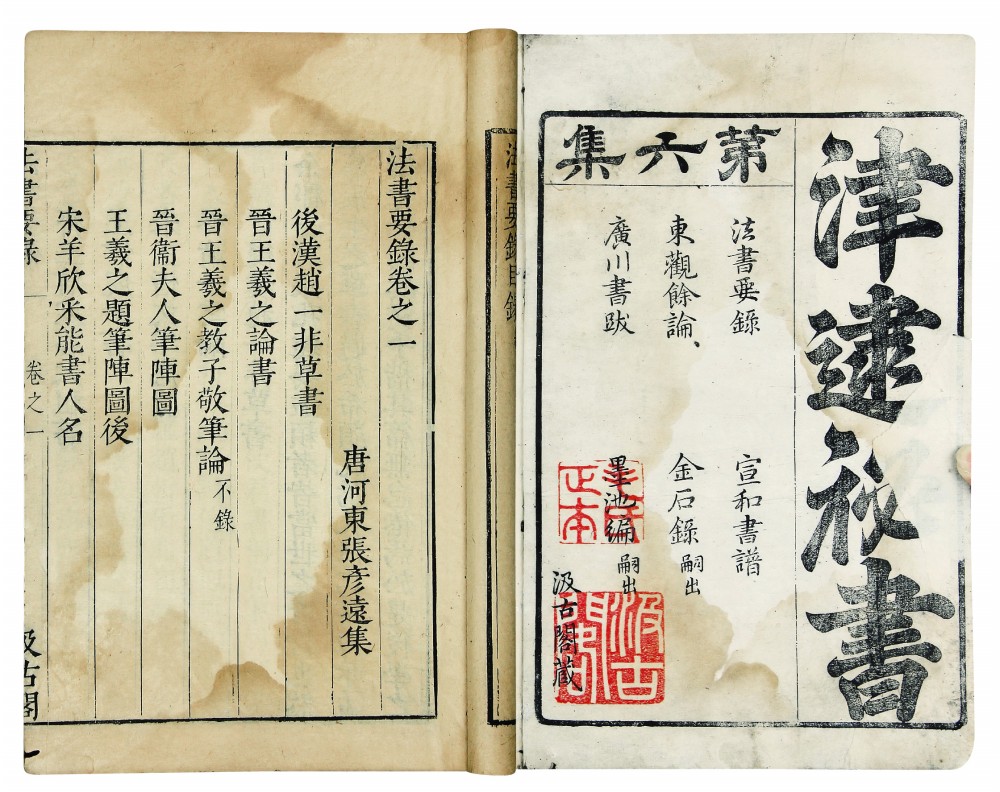 津逮祕書
第六集
法書要錄
宣和書譜
東觀餘論、
金石錄嗣出
廣川書跋
墨池編嗣出
汲古閣藏
毛氏正本
汲古閣
法書要錄目錄
法書要錄卷之一
唐河東張彥遠集
後漢趙一非草書
晉王羲之論書
晉王羲之教子敬筆論不錄
晉衞夫人筆陣圖
王羲之題筆陣圖後
宋羊欣釆能書人名
法書要錄
卷之一
汲古閣